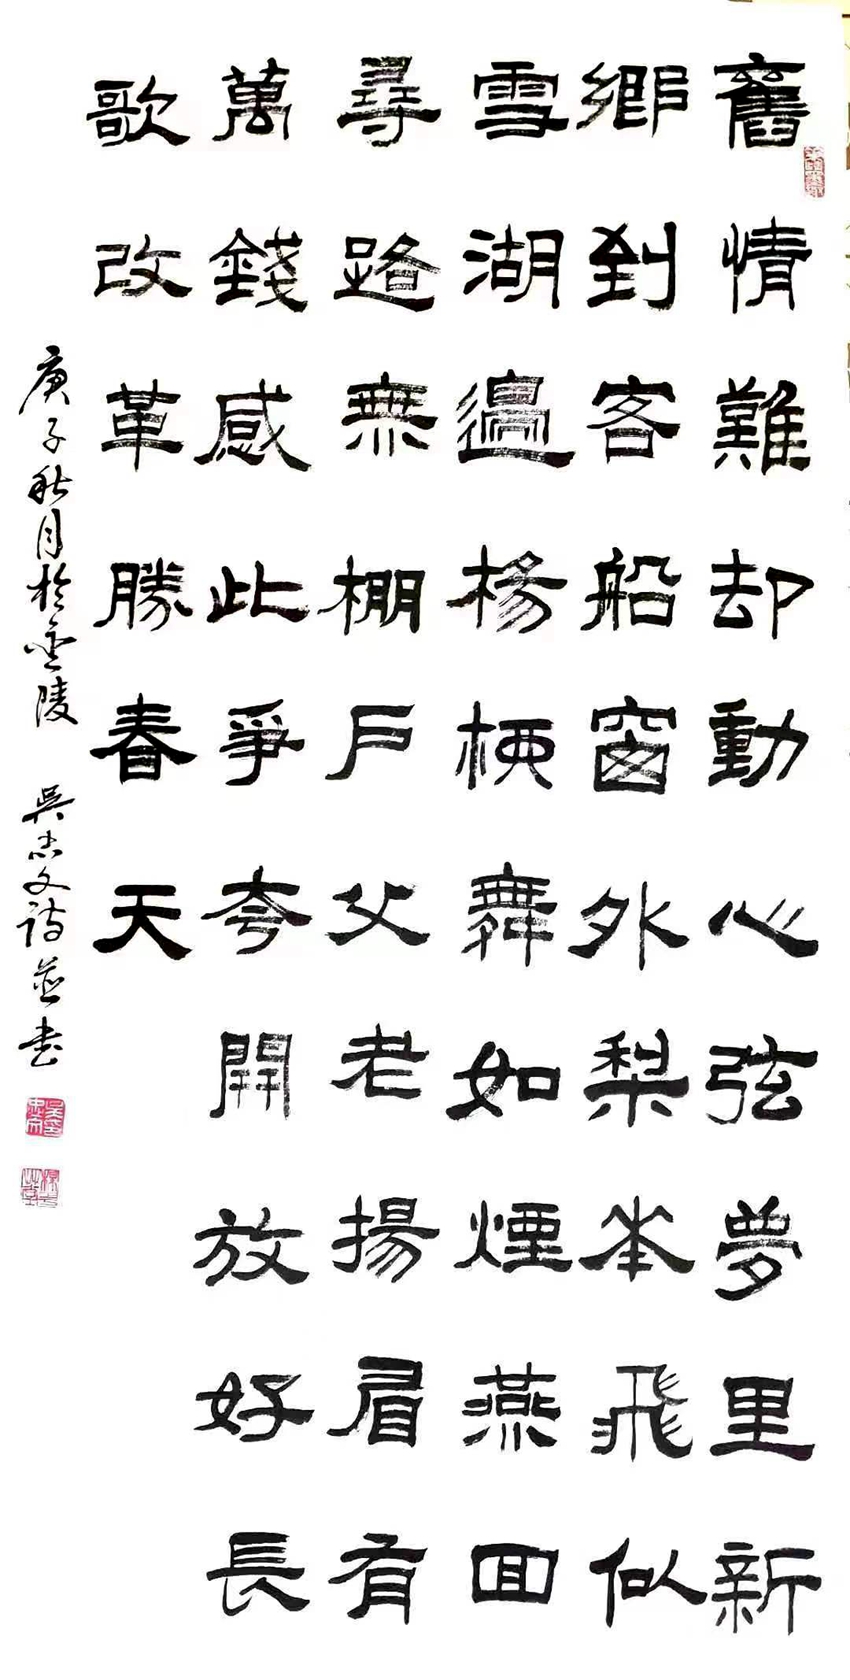 舊情難却動心弦夢里新
鄉到客船窗外梨花飛似
雪湖邊楊柳舞如煙燕回
尋路無棚戶父老揚眉有
萬錢感此爭夸開放好長
歌改革勝春天
庚子秋月於金陵 吳忠文詩並书